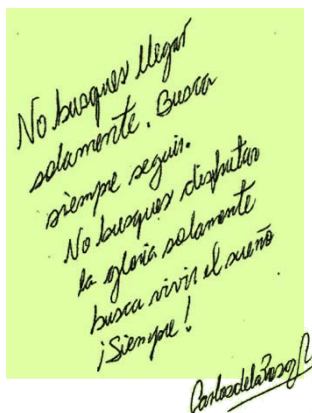 No busques llegar
solamente. Busca
siempre seguir.
No busques disfrutar
la gloria solamente
busca vivir el sueño
¡Siempre!
Carlos de la Rosa